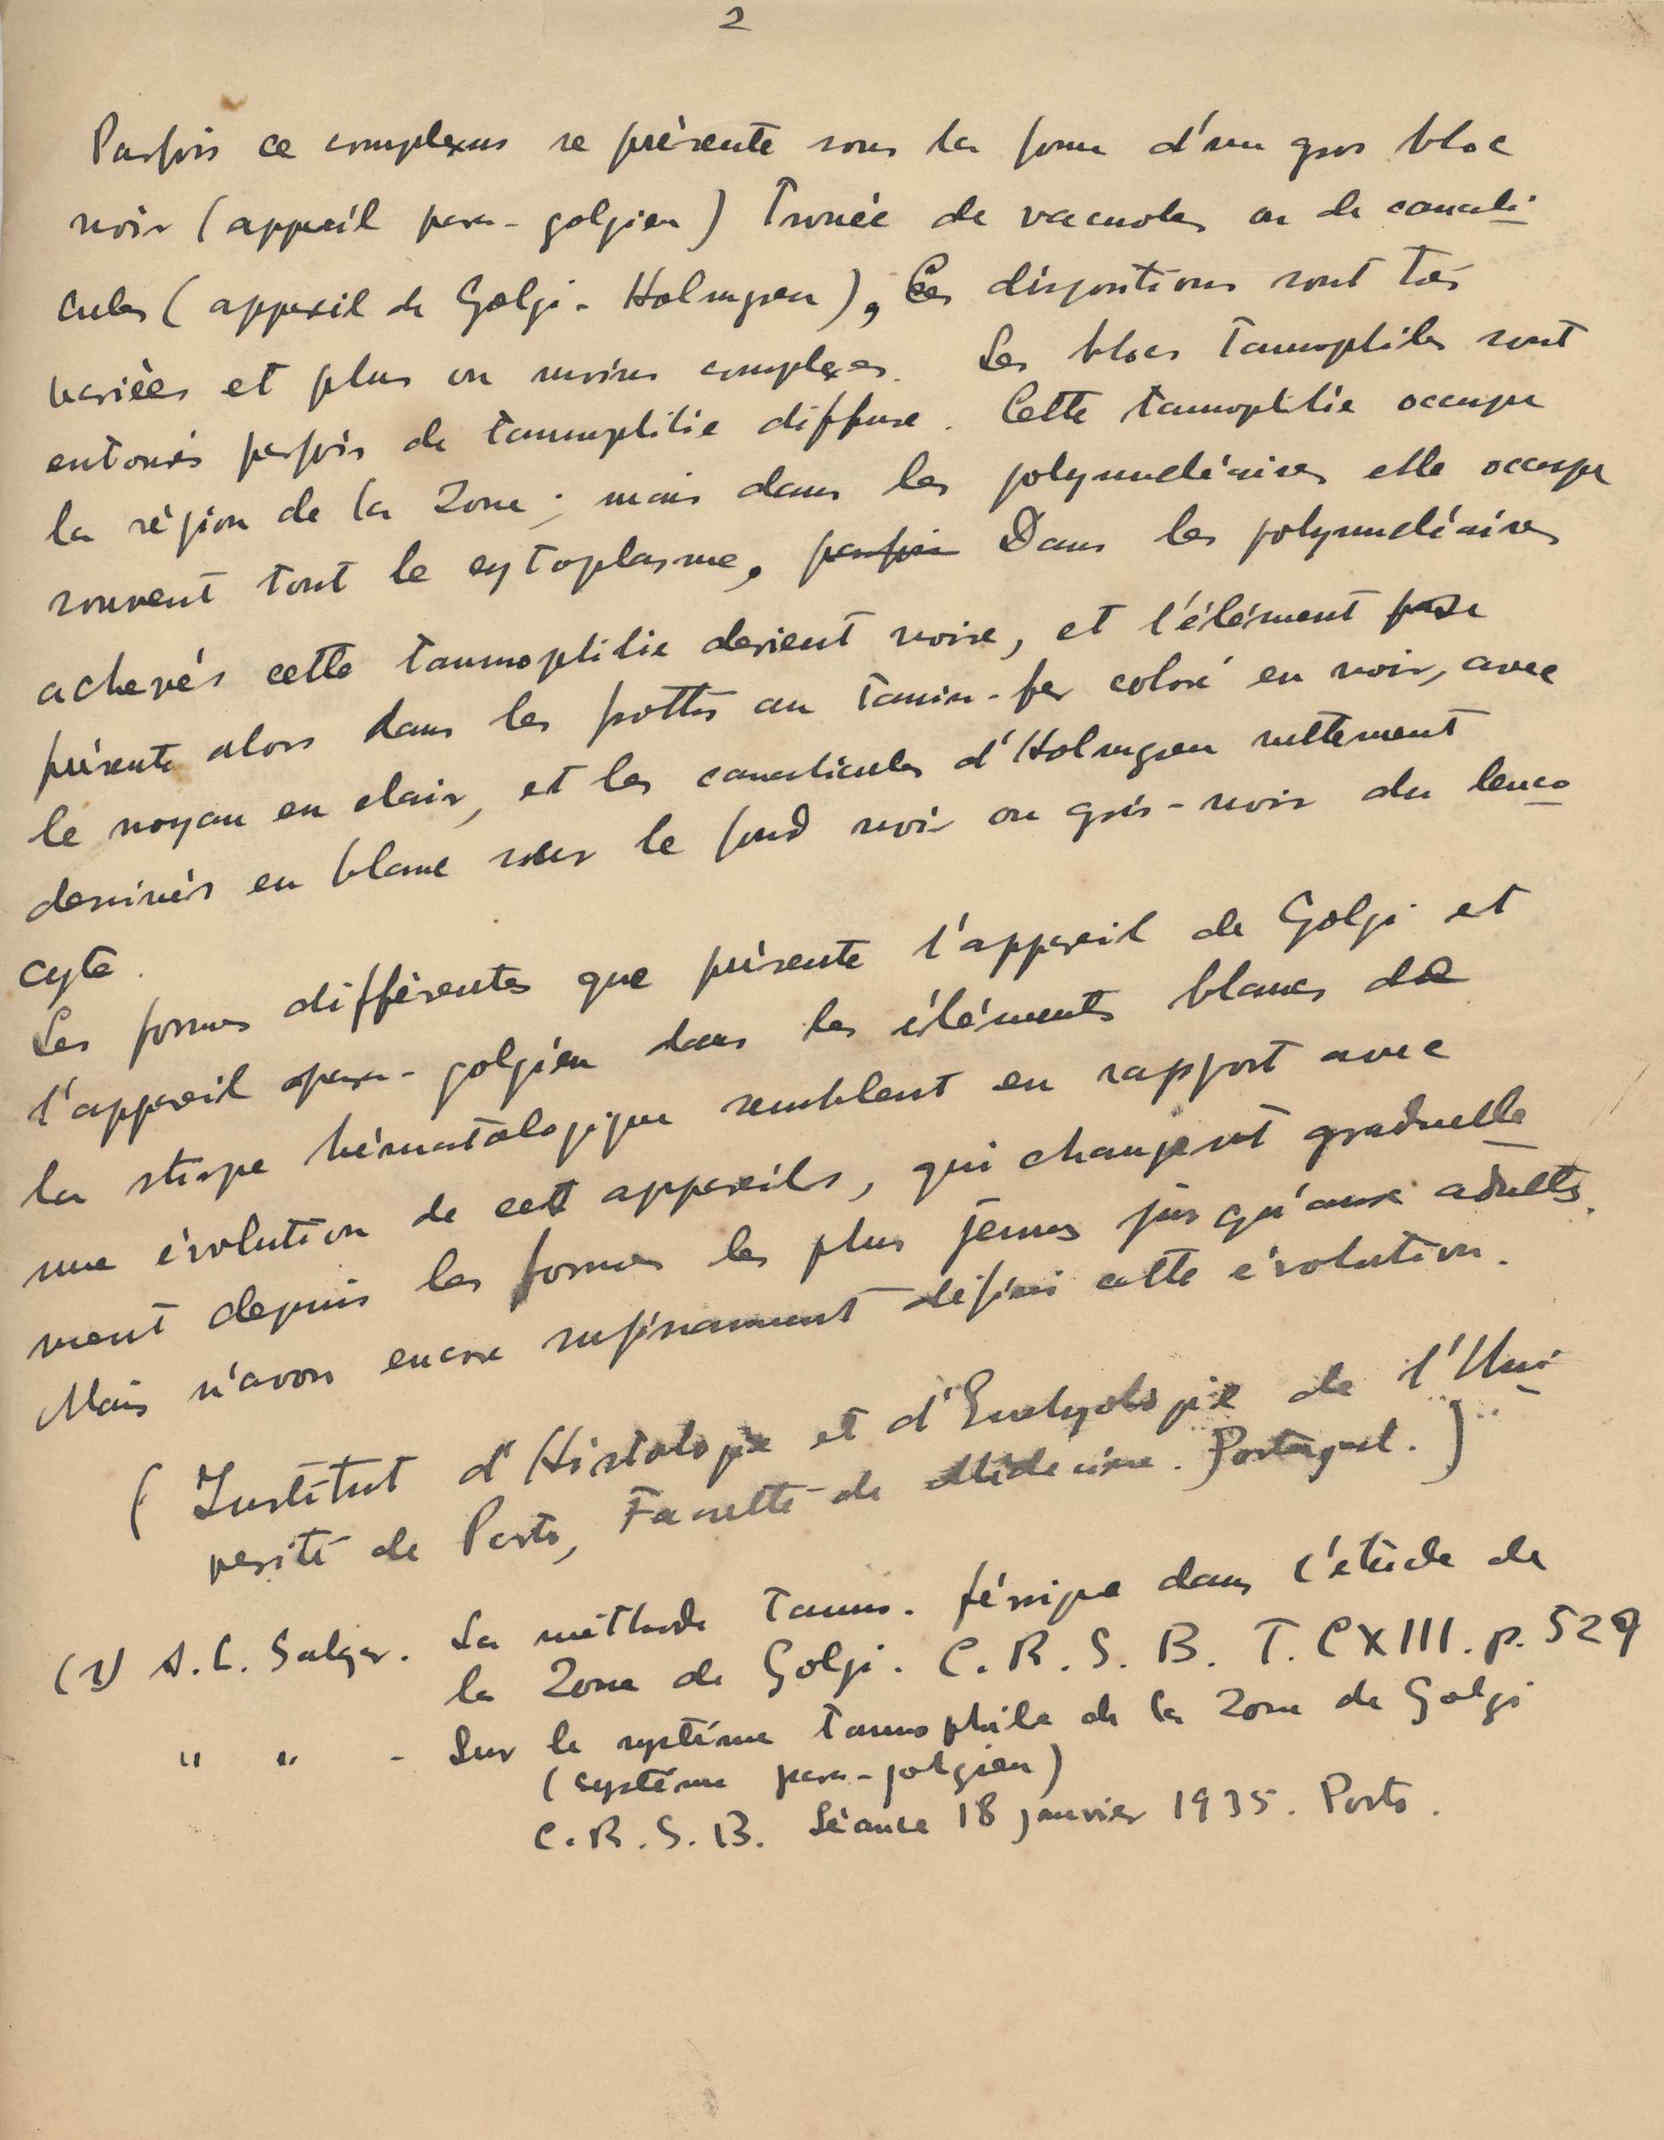 2
Parfois ce complexus se présente sous la forme d'un gros bloc
noir (appareil para-golgien) troué de vacuoles ou de canali-
cules (appareil de Golgi-Holmgren), Ces dispositions sont très
variées et plus ou moins complexes. Les blocs tannophiles sont
entourés parfois de tannophilie diffuse. Cette tannophilie occupe
la région de la Zone; mais dans les polynucléaires elle occupe
souvent tout le cytoplasme. parfois Dans les polynucléaires
achevés cette tannophilie devient noire, et l'élément
présente alors dans les frottis au Tanin-fer coloré en noir, avec
le noyau en clair, et les canalicules d'Holmgren nettement
dessinés en blanc sur le fond noir ou gris-noir du leuco
cyte.
Les formes différentes que présente l'appareil de Golgi et
l'appareil para-golgien dans les éléments blancs de
la stirpe hématologique semblent en rapport avec
une évolution de cet appareils, qui changent graduelle
ment depuis les formes les plus jeunes jusqu'aux adultes.
Mais n'avons encore suffisamment défini cette évolution.
(Institut d'Histologie et d'Embryologie de l'Uni
versité de Porto, Faculté de Médecine. Portugal.)
(1) A. C. Salazar. La méthode tanno-férrique dans l'étude de
la Zone de Golgi. C. R. S. B. T. CXIII. p. 529
" " - Sur le système tannophile de la Zone de Golgi
(système para-golgien)
C. R. S. B. Séance 18 janvier 1935. Porto.